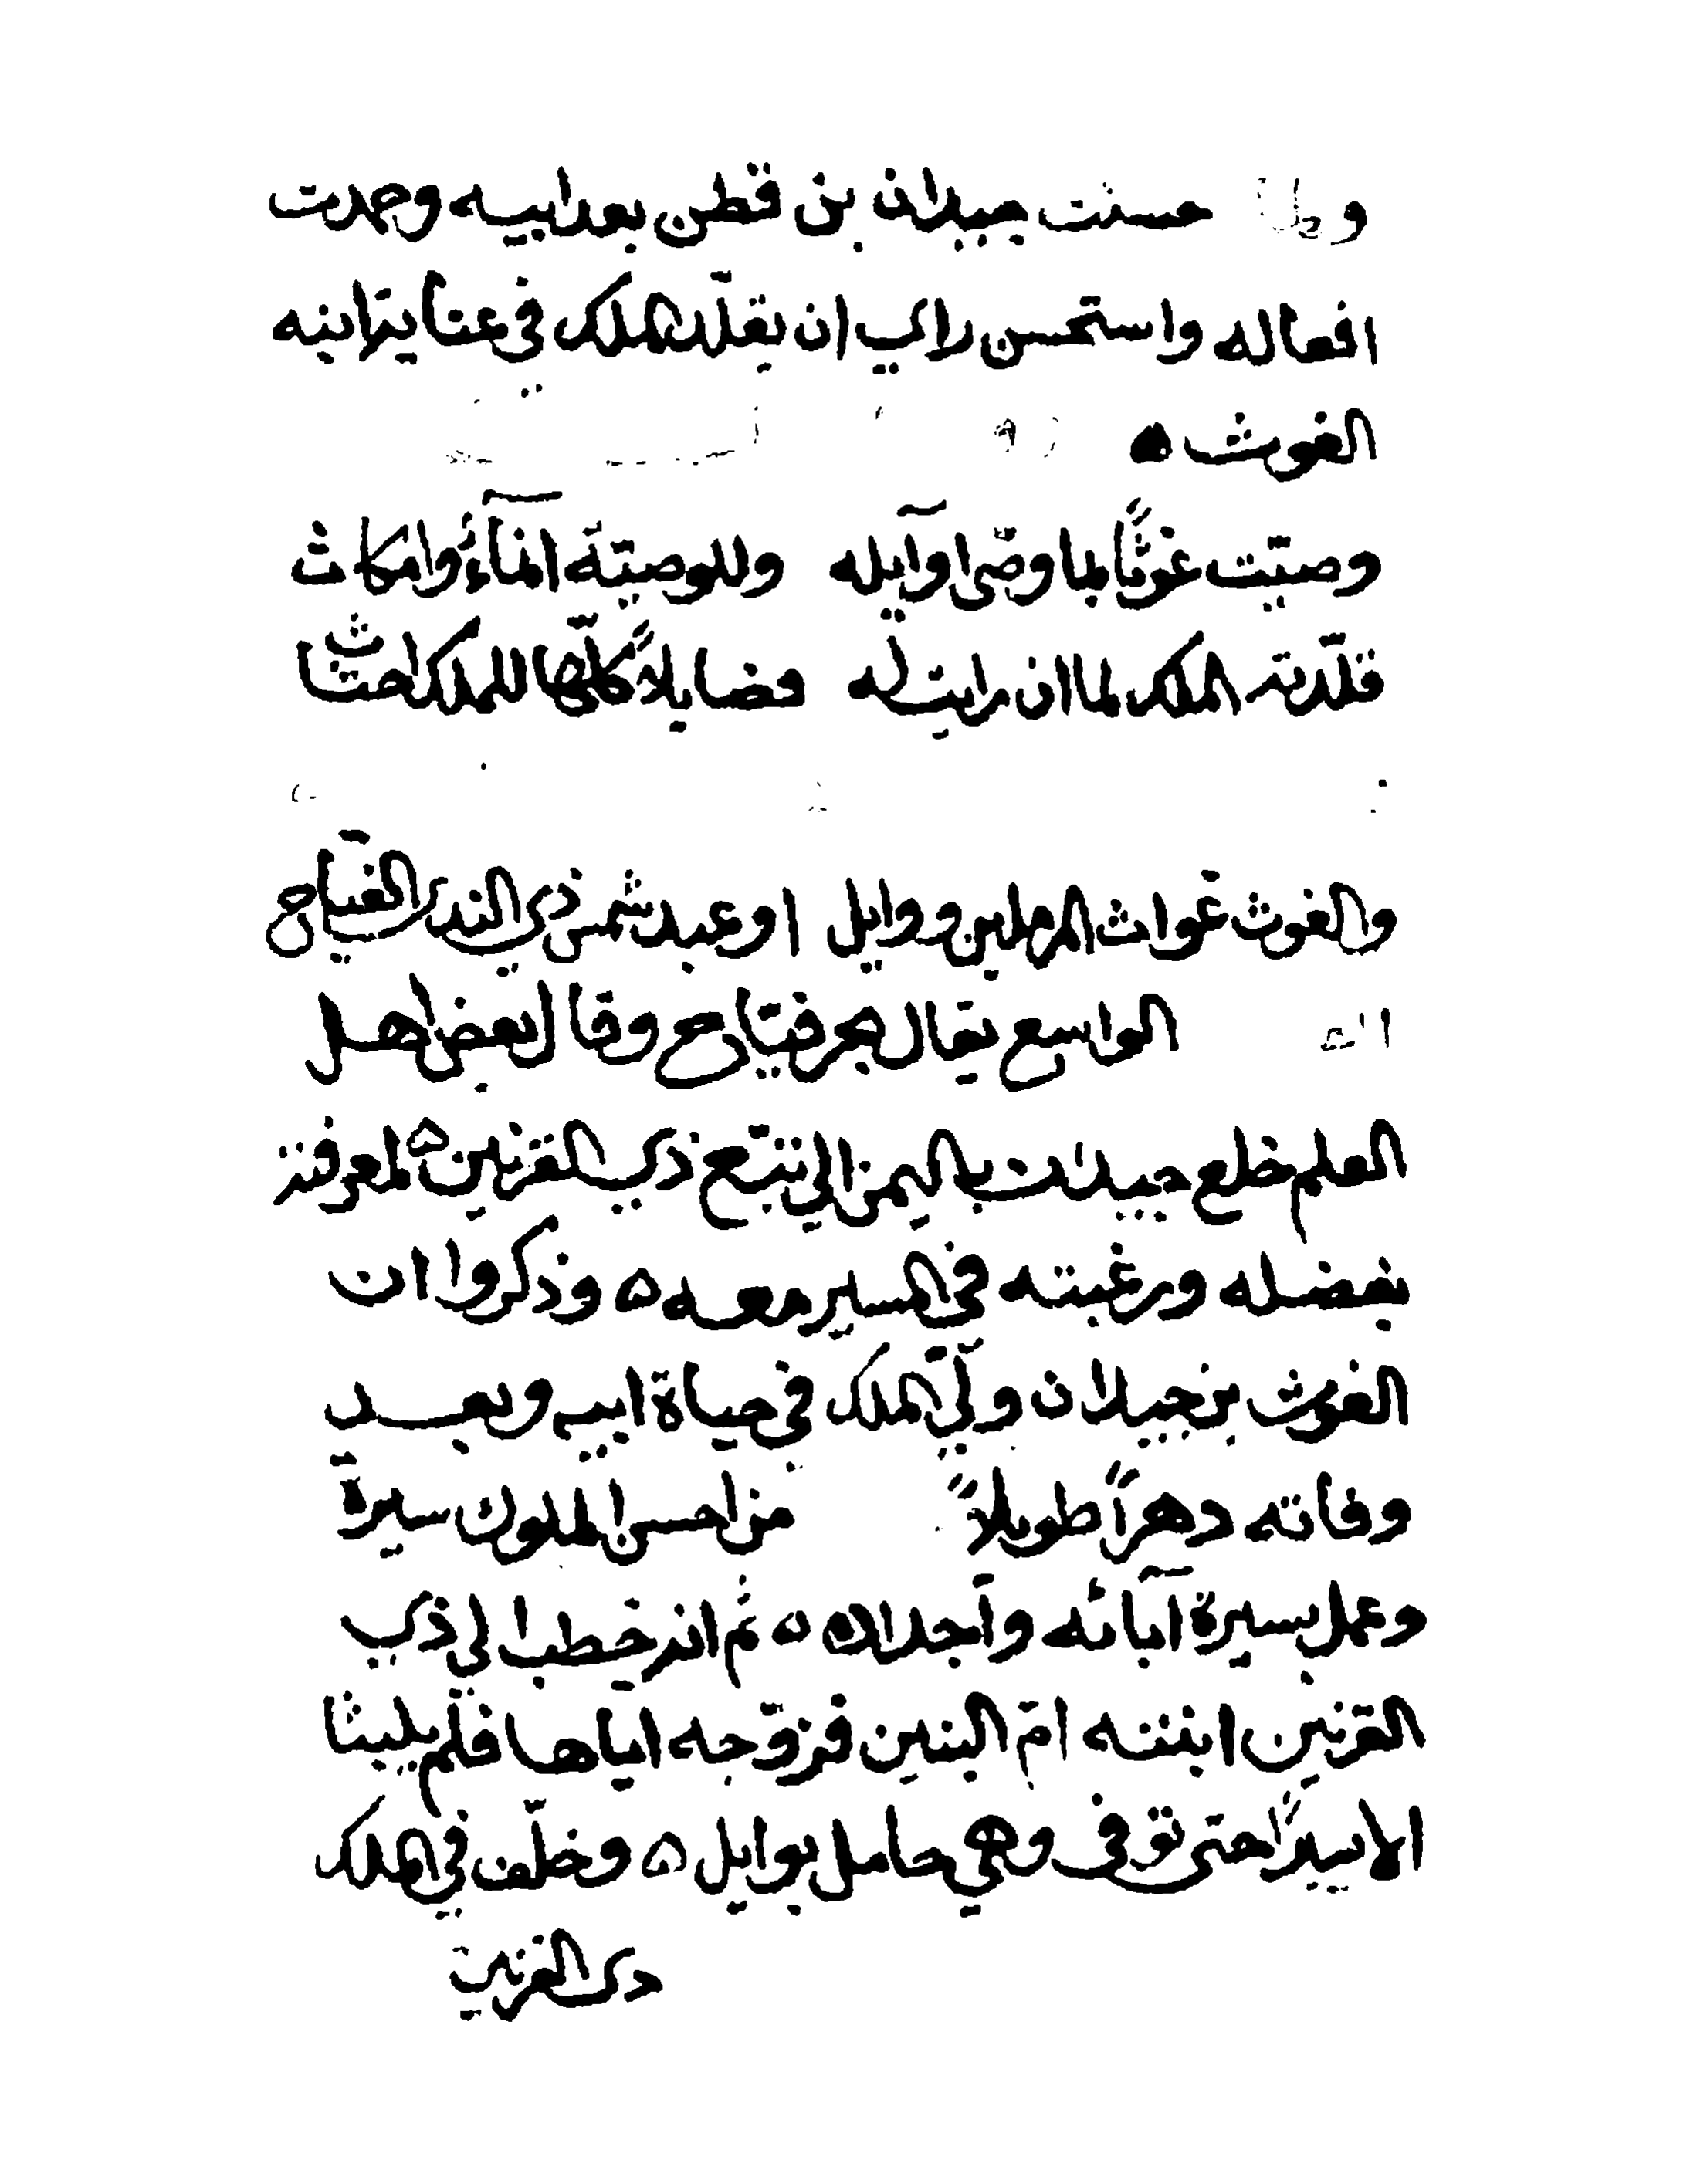 حسنت جيدان بن قطن بعد ابيه وحمدت
افعاله واستحسن راي ان يقلّد الملك في عناية ابنه
الغوث ه
وصيّت غوثًا بما وصّى اوآيله وللوصيّة
قلّدته الملك لما ان رايت له فضايلاً كلّها للملك
والغوث غواث المرملين ووايل او عبد شمس ذي الندى الفيّاح
الواسع يقال بحر فيّاح وقال بعض اهل
العلم خلع جيدان باليمن الى تبّع ذي القرنين لمعرفته
بفضله ورغبته في المسير معه ه وذكروا ان
الغوث بن جيدان ولّي الملك في حياة ابيه وبعد
وفاته دهرًا طويلاً من احسن الملوك سيرة
وعمل بسيرة آبائه وآجداده ه ثم انه خطب الى ذي
القرنين ابنته امّ البنين فزوّجه اياها فلم يلبثا
الا يسيرًا حتى توفى وهي حامل بوايل ه وخلّف في الملك
ذى القرنين